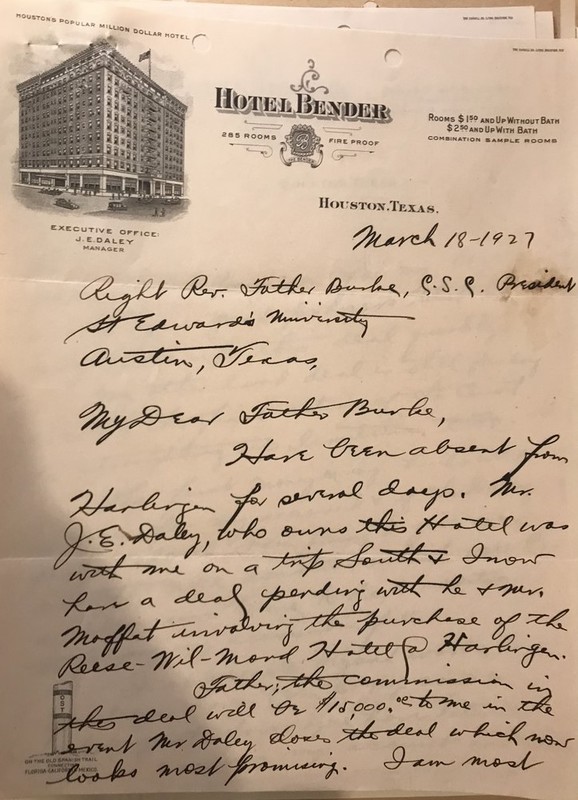 HOUSTON'S POPULAR MILLION DOLLAR HOTEL
HOTEL BENDER
285 ROOMS FIRE PROOF
THE BENDER
ROOMS $1.50 AND UP WITHOUT BATH
$2.50 AND UP WITH BATH
COMBINATION SAMPLE ROOMS
HOUSTON, TEXAS.
EXECUTIVE OFFICE:
J. E. DALEY
MANAGER
March 18-1927
Right Rev. Father Burke, C.S.C. President
St Edward's University
Austin, Texas,
My Dear Father Burke,
Have been absent from
Harlingen for several days. Mr.
J. E. Daley, who owns this Hotel was
with me on a trip South & I now
have a deal pending with he & Mr.
Moffat involving the purchase of the
Reese-Wil-Mond Hotel @ Harlingen.
Father, the commission in
the deal will be $15,000.00 to me in the
event Mr Daley closes the deal which now
looks most promising. I am most
OST
ON THE OLD SPANISH TRAIL
CONNECTING
FLORIDA-CALIFORNIA-MEXICO